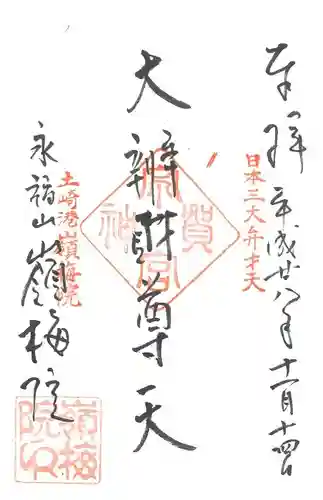 奉拝 平成廿八年十一月十四日
日本三大弁才天
大辨財尊天
土崎港嶺梅院
永福山嶺梅院
嶺梅
院印